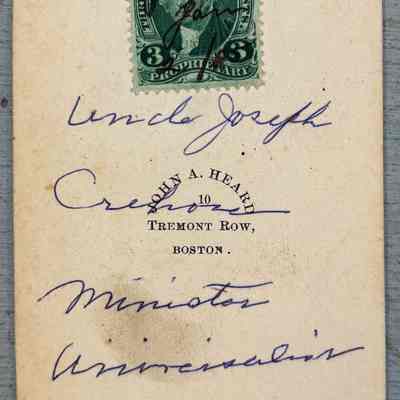 Jan
3 3
PROPRIETARY
Uncle Joseph
JOHN A. HEARD
Crehore
10
TREMONT ROW,
BOSTON.
Minister
Universalist